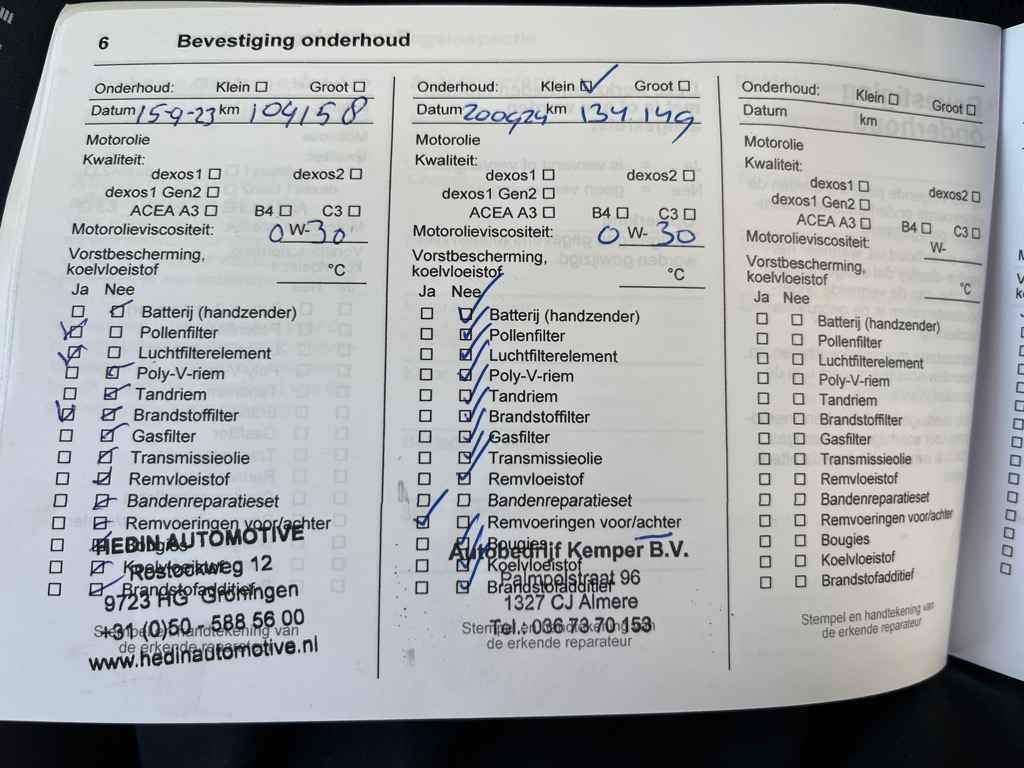 6 Bevestiging onderhoud
Onderhoud: Klein ☐ Groot ☐
Datum 15-9-23 km 104158
Motorolie
Kwaliteit:
dexos1 ☐ dexos2 ☐
dexos1 Gen2 ☐
ACEA A3 ☐ B4 ☐ C3 ☐
Motorolieviscositeit: 0 W-30
Vorstbescherming,
koelvloeistof °C
Ja Nee
Batterij (handzender)
Pollenfilter
Luchtfilterelement
Poly-V-riem
Tandriem
Brandstoffilter
Gasfilter
Transmissieolie
Remvloeistof
Bandenreparatieset
Remvoeringen voor/achter
Bougies
Koelvloeistof
Brandstofadditief
HEDIN AUTOMOTIVE
Rostockweg 12
9723 HG Groningen
+31 (0)50 - 588 56 00
www.hedinautomotive.nl
Stempel en handtekening van
de erkende reparateur
Onderhoud: Klein ☑ Groot ☐
Datum 200924 km 134.149
Motorolie
Kwaliteit:
dexos1 ☐ dexos2 ☐
dexos1 Gen2 ☐
ACEA A3 ☐ B4 ☐ C3 ☐
Motorolieviscositeit: 0 W- 30
Vorstbescherming,
koelvloeistof °C
Ja Nee
Batterij (handzender)
Pollenfilter
Luchtfilterelement
Poly-V-riem
Tandriem
Brandstoffilter
Gasfilter
Transmissieolie
Remvloeistof
Bandenreparatieset
Remvoeringen voor/achter
Bougies
Koelvloeistof
Brandstofadditief
Autobedrijf Kemper B.V.
Palmpolstraat 96
1327 CJ Almere
Tel.: 036 73 70 153
Stempel en handtekening van
de erkende reparateur
Onderhoud: Klein ☐ Groot ☐
Datum km
Motorolie
Kwaliteit:
dexos1 ☐ dexos2 ☐
dexos1 Gen2 ☐
ACEA A3 ☐ B4 ☐ C3 ☐
Motorolieviscositeit: W-
Vorstbescherming,
koelvloeistof °C
Ja Nee
Batterij (handzender)
Pollenfilter
Luchtfilterelement
Poly-V-riem
Tandriem
Brandstoffilter
Gasfilter
Transmissieolie
Remvloeistof
Bandenreparatieset
Remvoeringen voor/achter
Bougies
Koelvloeistof
Brandstofadditief
Stempel en handtekening van
de erkende reparateur